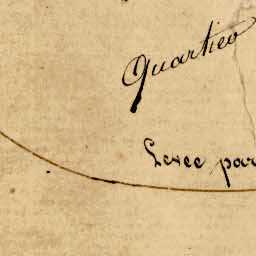 Quartier
Levee par